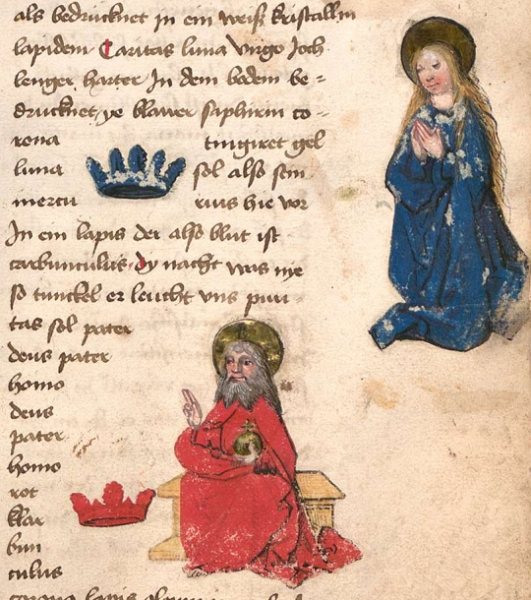 als bedrucknet in ein weiß kristallin
lapidem Caritas luna virgo Joch
lenger harter In dem bodem be=
drucknet ye blawer saphirin co=
rona tingiret gel
luna sol also sein
mercu rius hie vor
In ein lapis der also blut ist
carbunculus dy nacht was nye
so tunckel er leucht vns puri=
tas sol pater
deus pater
homo
deus
pater
homo
rot
klar
bun
culus
corona lapis